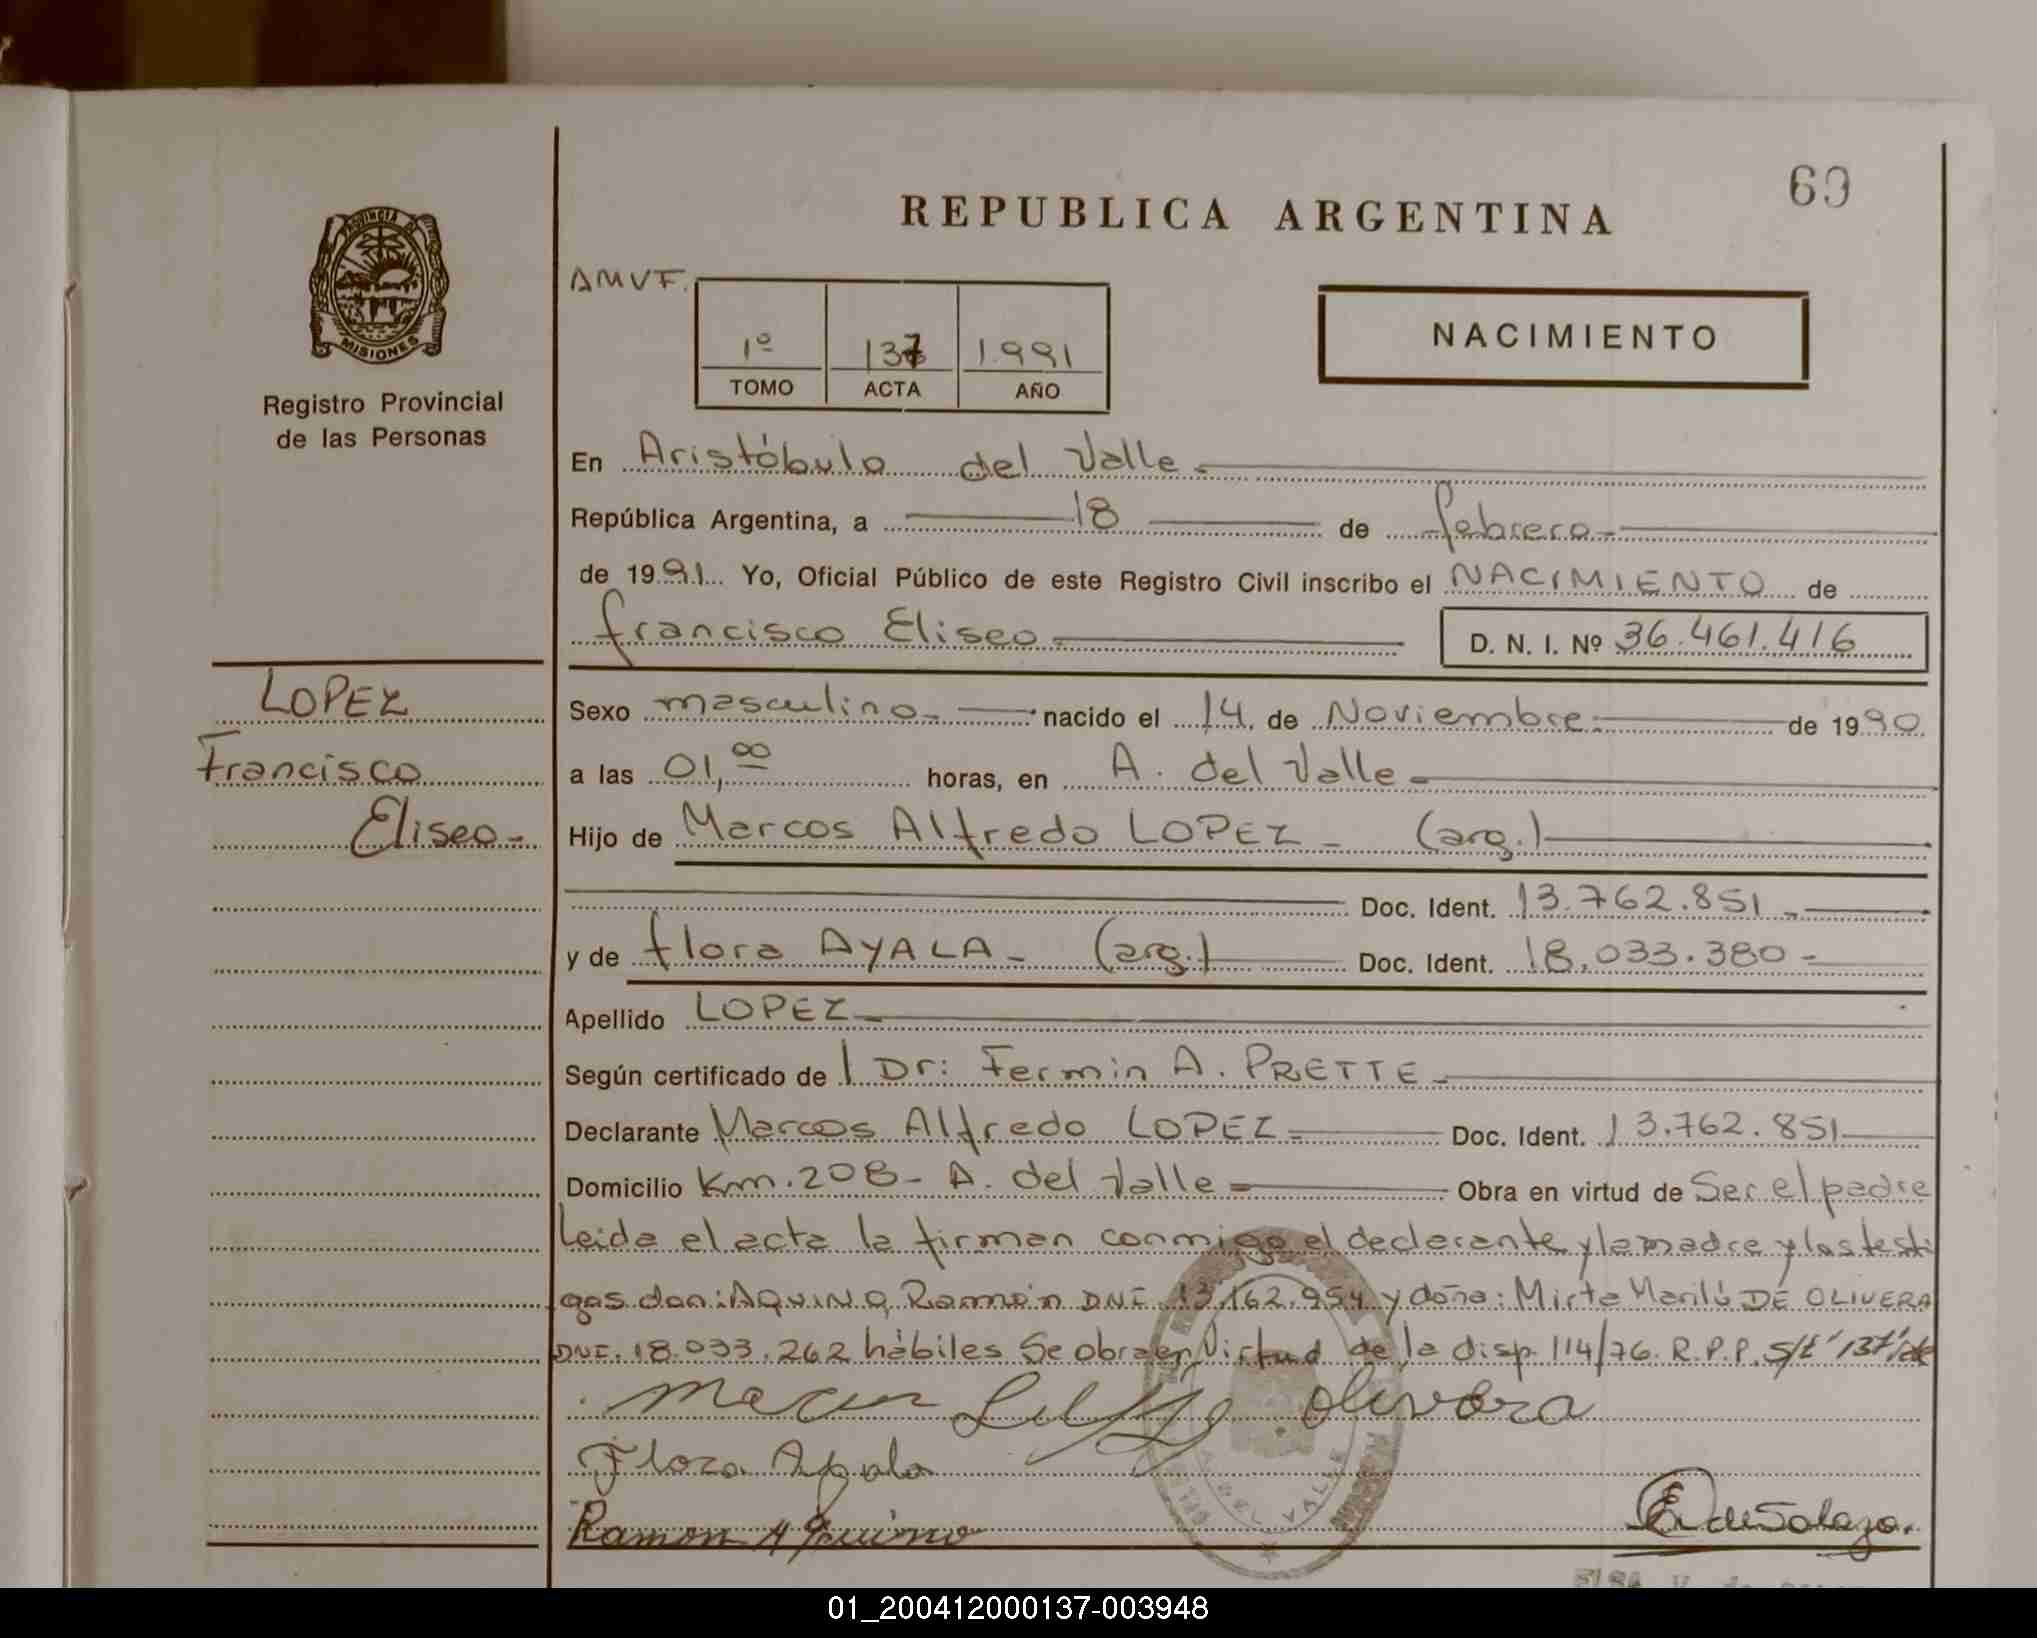 69
REPUBLICA ARGENTINA
PROVINCIA DE
MISIONES
Registro Provincial
de las Personas
AMVF.
1º 137 1.991
TOMO ACTA AÑO
NACIMIENTO
En Aristóbulo del Valle.
República Argentina, a 18 de febrero
de 1991 Yo, Oficial Público de este Registro Civil inscribo el NACIMIENTO de
francisco Eliseo D. N. I. Nº 36.461.416
LOPEZ
Francisco
Eliseo-
Sexo masculino nacido el 14 de Noviembre de 1990
a las 01,00 horas, en A. del Valle
Hijo de Marcos Alfredo LOPEZ - (arg.)
Doc. Ident. 13.762.851
y de flora AYALA - (arg.) Doc. Ident. 18.033.380 -
Apellido LOPEZ
Según certificado de Dr: Fermin A. PRETTE
Declarante Marcos Alfredo LOPEZ Doc. Ident. 13.762.851
Domicilio Km. 208- A. del Valle Obra en virtud de Ser el padre
leida el acta la firman conmigo el declarante y la madre y los testi
gos don: AQUINO, Ramón DNI. 13.162.954 y doña: Mirta Marilú DE OLIVERA
DNI. 18.033.262 hábiles Se obra en Virtud de la disp. 114/76. R.P.P. S/t "137"
Olivera
Flora Ayala
Ramon Aquino
A. DEL VALLE
01_200412000137-003948